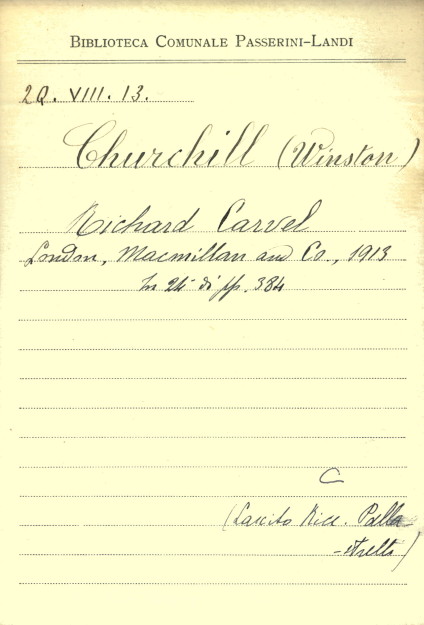 BIBLIOTECA COMUNALE PASSERINI-LANDI
2Q. VIII. 13.
Churchill (Winston)
Richard Carvel
London, Macmillan and Co., 1913
In 24° di pp. 384
C
(Lascito Ricc. Palla-
-strelli)